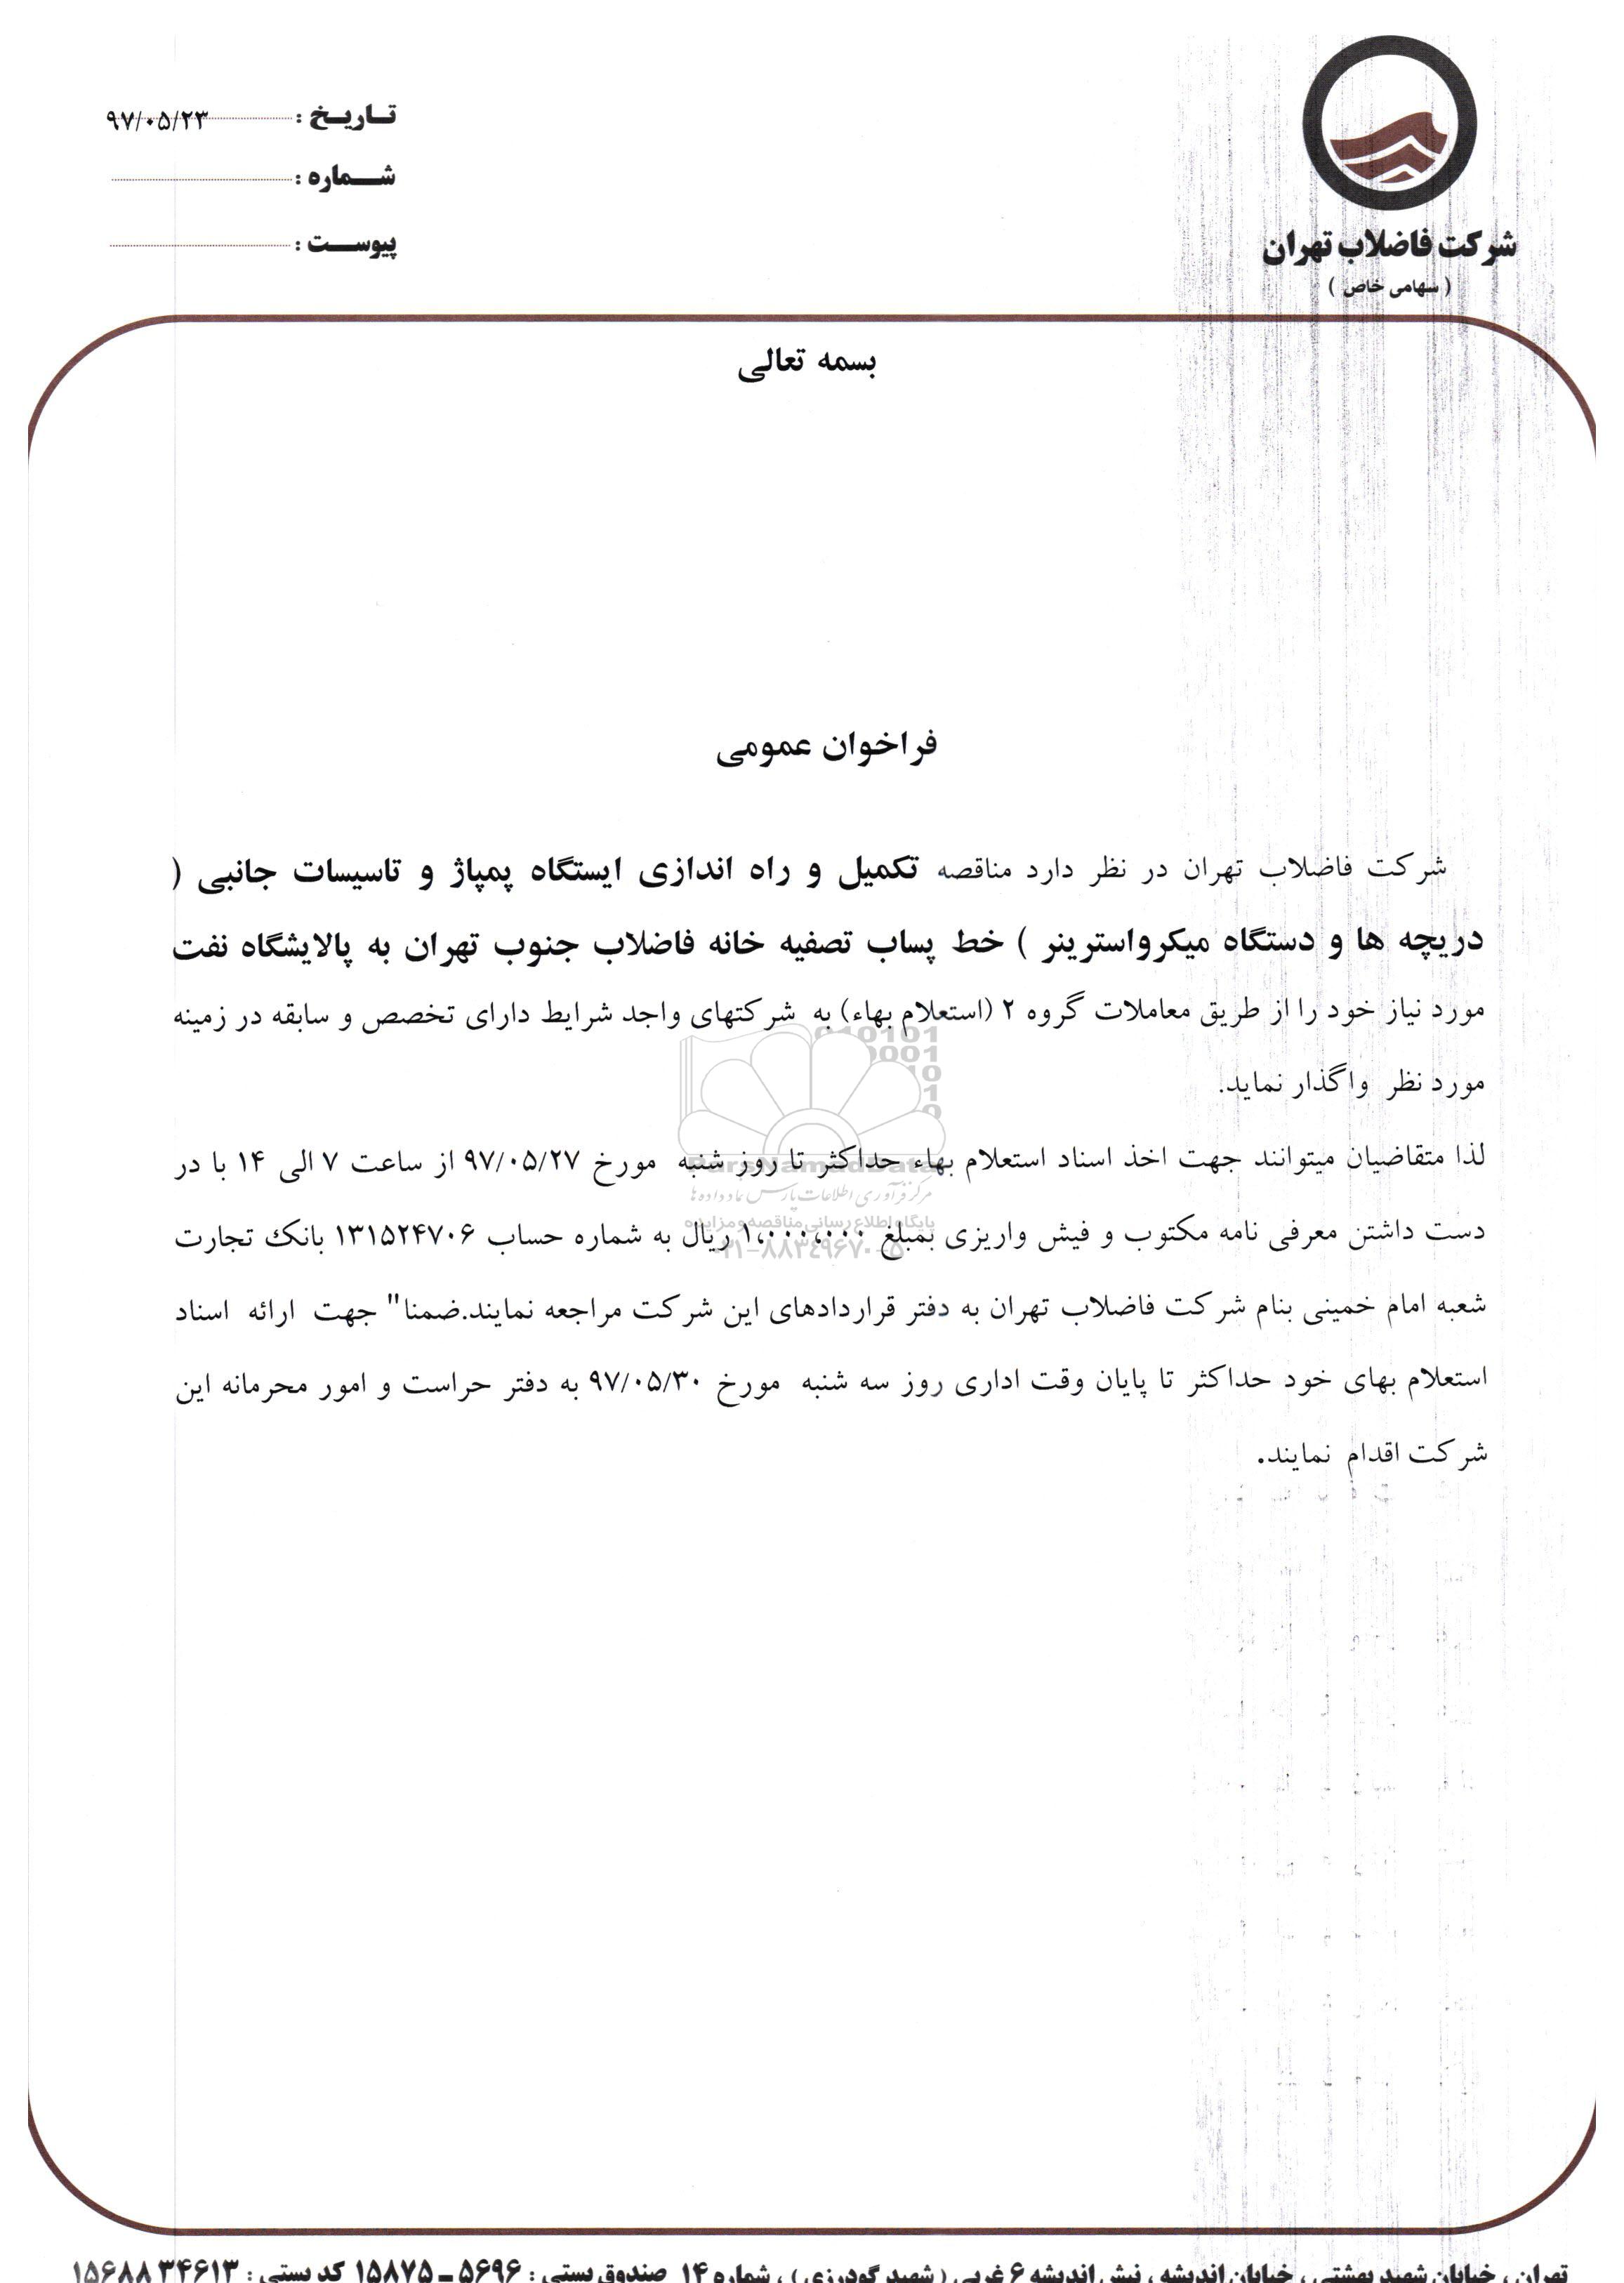 تاریخ : ۹۷/۰۵/۲۳
شماره :
پیوست :
شرکت فاضلاب تهران
( سهامی خاص )
بسمه تعالی
فراخوان عمومی
شرکت فاضلاب تهران در نظر دارد مناقصه تکمیل و راه اندازی ایستگاه پمپاژ و تاسیسات جانبی (
دریچه ها و دستگاه میکرواسترینر ) خط پساب تصفیه خانه فاضلاب جنوب تهران به پالایشگاه نفت
مورد نیاز خود را از طریق معاملات گروه ۲ (استعلام بهاء) به شرکتهای واجد شرایط دارای تخصص و سابقه در زمینه
مورد نظر واگذار نماید.
لذا متقاضیان میتوانند جهت اخذ اسناد استعلام بهاء حداکثر تا روز شنبه مورخ ۹۷/۰۵/۲۷ از ساعت ۷ الی ۱۴ با در
دست داشتن معرفی نامه مکتوب و فیش واریزی بمبلغ ۱،۰۰۰،۰۰۰ ریال به شماره حساب ۱۳۱۵۲۴۷۰۶ بانک تجارت
شعبه امام خمینی بنام شرکت فاضلاب تهران به دفتر قراردادهای این شرکت مراجعه نمایند.ضمنا" جهت ارائه اسناد
استعلام بهای خود حداکثر تا پایان وقت اداری روز سه شنبه مورخ ۹۷/۰۵/۳۰ به دفتر حراست و امور محرمانه این
شرکت اقدام نمایند.
ParsNamadData
مرکز فرآوری اطلاعات پارس نماد داده ها
پایگاه اطلاع رسانی مناقصه و مزایده
۰۲۱-۸۸۳۴۹۶۷۰-۵
تهران ، خیابان شهید بهشتی ، خیابان اندیشه ، نبش اندیشه ۶ غربی ( شهید گودرزی ) ، شماره ۱۴ صندوق پستی : ۵۶۹۶ ـ ۱۵۸۷۵ کد پستی : ۳۴۶۱۳ ۱۵۶۸۸